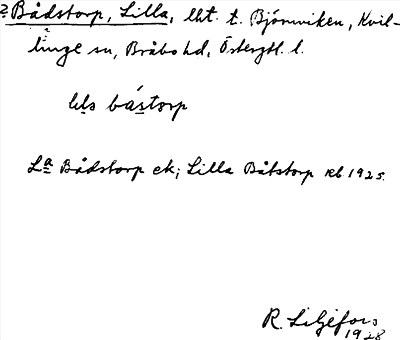 Bådstorp, Lilla, lht. t. Björnviken, Kvil-
linge sn, Bråbo hd, Östergtl. l.
bástorp
La Bådstorp ek; Lilla Båtstorp kb 1925.
R. Liljefors
1928